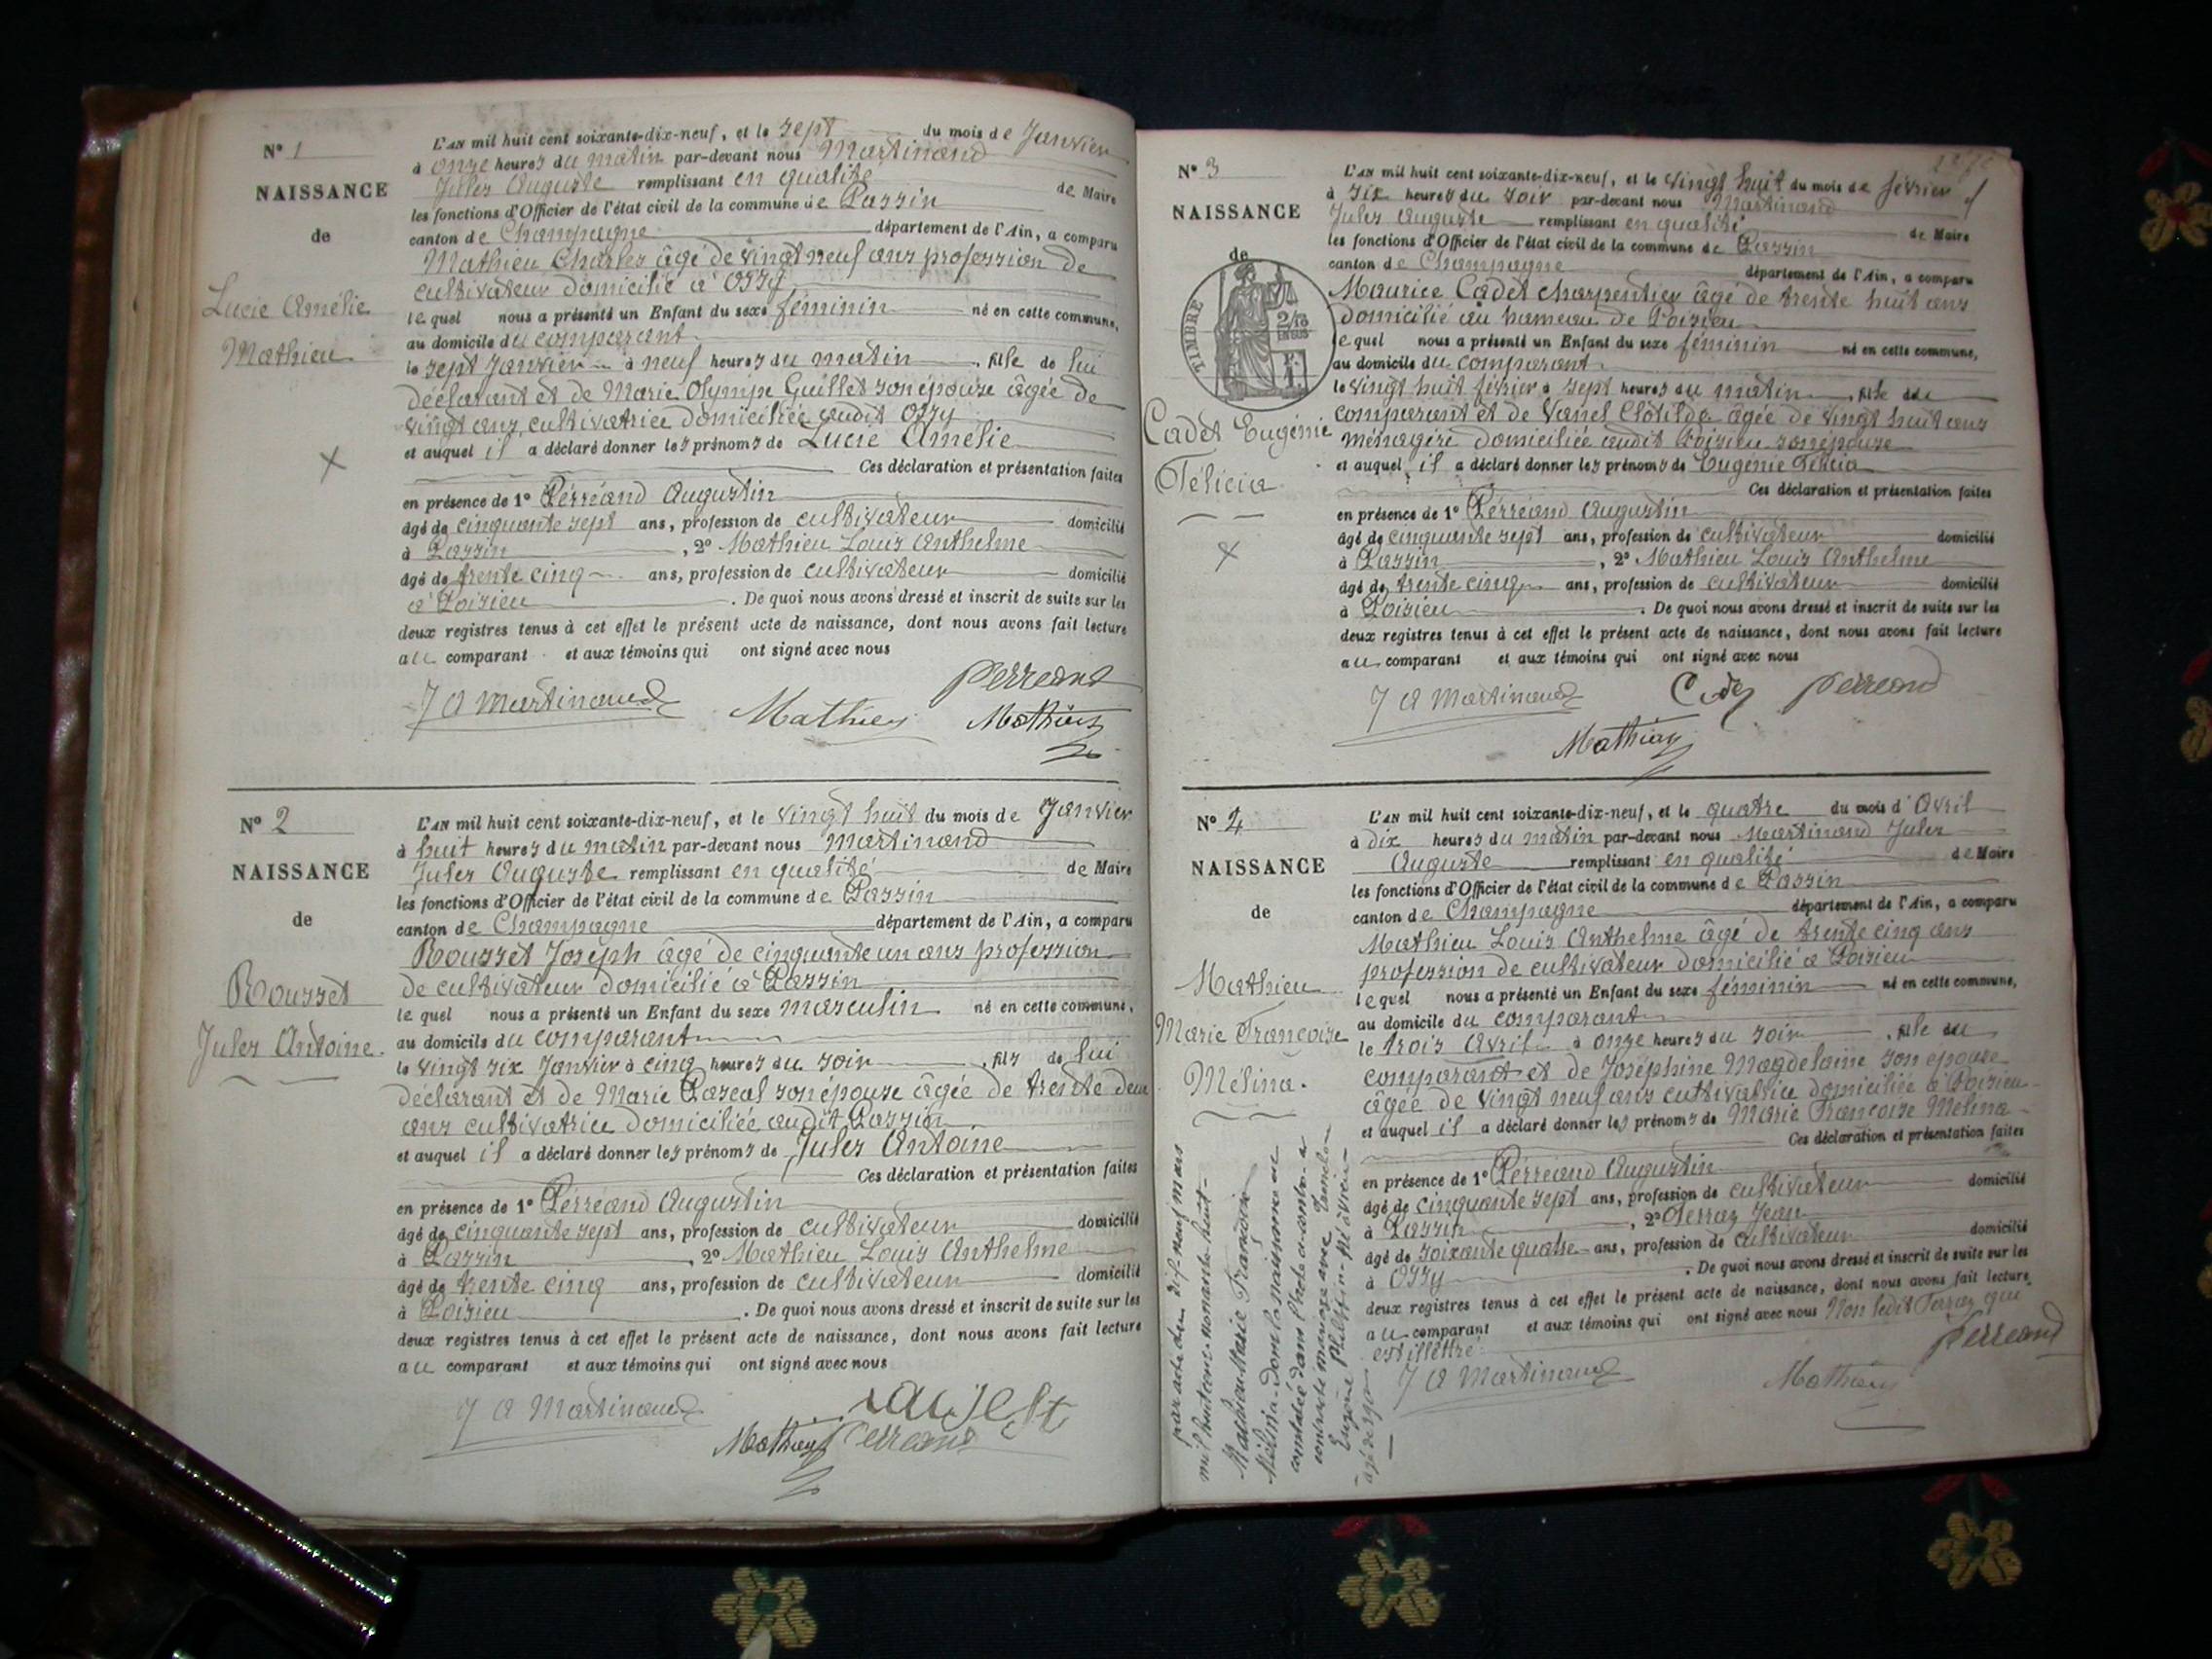 N° 1
NAISSANCE
de
Lucie Amélie
Mathieu
L'AN mil huit cent soixante-dix-neuf, et le sept du mois de Janvier
à onze heures du matin par-devant nous Martinand
Jules Auguste remplissant en qualité de Maire
les fonctions d'Officier de l'état civil de la commune de Passin
canton de Champagne département de l'Ain, a comparu
Mathieu Charles âgé de vingt neuf ans profession de
cultivateur domicilié à Ossy
lequel nous a présenté un Enfant du sexe féminin né en cette commune,
au domicile du comparant
le sept Janvier à neuf heures du matin, fille de lui
déclarant et de Marie Olympe Guillet son épouse âgée de
vingt ans, cultivatrice domiciliée audit Ossy
et auquel il a déclaré donner les prénoms de Lucie Amélie
Ces déclaration et présentation faites
en présence de 1° Perréand Augustin
âgé de cinquante sept ans, profession de cultivateur domicilié
à Passin, 2° Mathieu Louis Anthelme
âgé de trente cinq ans, profession de cultivateur domicilié
à Poisieu. De quoi nous avons dressé et inscrit de suite sur les
deux registres tenus à cet effet le présent acte de naissance, dont nous avons fait lecture
au comparant et aux témoins qui ont signé avec nous
Perreand
J A Martinand Mathieu Mathieu
N° 2
NAISSANCE
de
Rousset
Jules Antoine.
L'AN mil huit cent soixante-dix-neuf, et le vingt huit du mois de Janvier
à huit heures du matin par-devant nous Martinand
Jules Auguste remplissant en qualité de Maire
les fonctions d'Officier de l'état civil de la commune de Passin
canton de Champagne département de l'Ain, a comparu
Rousset Joseph âgé de cinquante un ans profession
de cultivateur domicilié à Passin
lequel nous a présenté un Enfant du sexe masculin né en cette commune,
au domicile du comparant
le vingt six Janvier à cinq heures du soir, fils de lui
déclarant et de Marie Pascal son épouse âgée de trente deux
ans cultivatrice domiciliée audit Passin
et auquel il a déclaré donner les prénoms de Jules Antoine
Ces déclaration et présentation faites
en présence de 1° Perréand Augustin
âgé de cinquante sept ans, profession de cultivateur domicilié
à Passin, 2° Mathieu Louis Anthelme
âgé de trente cinq ans, profession de cultivateur domicilié
à Poisieu. De quoi nous avons dressé et inscrit de suite sur les
deux registres tenus à cet effet le présent acte de naissance, dont nous avons fait lecture
au comparant et aux témoins qui ont signé avec nous
J A Martinand
Mathieu Perreand
N° 3
NAISSANCE
de
TIMBRE
Cadet Eugénie
Félicia
L'AN mil huit cent soixante-dix-neuf, et le vingt huit du mois de février
à six heures du soir par-devant nous Martinand
Jules Auguste remplissant en qualité de Maire
les fonctions d'Officier de l'état civil de la commune de Passin
canton de Champagne département de l'Ain, a comparu
Maurice Cadet charpentier âgé de trente huit ans
domicilié au hameau de Poisieu
lequel nous a présenté un Enfant du sexe féminin né en cette commune,
au domicile du comparant
le vingt huit février à sept heures du matin, fille du
comparant et de Vanel Clotilde âgée de vingt huit ans
ménagère domiciliée audit Poisieu son épouse
et auquel il a déclaré donner les prénoms de Eugénie Félicia
Ces déclaration et présentation faites
en présence de 1° Perréand Augustin
âgé de cinquante sept ans, profession de cultivateur domicilié
à Passin, 2° Mathieu Louis Anthelme
âgé de trente cinq ans, profession de cultivateur domicilié
à Poisieu. De quoi nous avons dressé et inscrit de suite sur les
deux registres tenus à cet effet le présent acte de naissance, dont nous avons fait lecture
au comparant et aux témoins qui ont signé avec nous
J A Martinand Cadet Perreand
Mathieu
N° 4
NAISSANCE
de
Mathieu
Marie Françoise
Mélina.
L'AN mil huit cent soixante-dix-neuf, et le quatre du mois d'Avril
à dix heures du matin par-devant nous Martinand Jules
Auguste remplissant en qualité de Maire
les fonctions d'Officier de l'état civil de la commune de Passin
canton de Champagne département de l'Ain, a comparu
Mathieu Louis Anthelme âgé de trente cinq ans
profession de cultivateur domicilié à Poisieu
lequel nous a présenté un Enfant du sexe féminin né en cette commune,
au domicile du comparant
le trois Avril à onze heures du soir, fille du
comparant et de Joséphine Magdelaine son épouse
âgée de vingt neuf ans cultivatrice domiciliée à Poisieu
et auquel il a déclaré donner les prénoms de Marie Françoise Mélina
Ces déclaration et présentation faites
en présence de 1° Perréand Augustin
âgé de cinquante sept ans, profession de cultivateur domicilié
à Passin, 2° Serraz Jean
âgé de soixante quatre ans, profession de cultivateur domicilié
à Ossy. De quoi nous avons dressé et inscrit de suite sur les
deux registres tenus à cet effet le présent acte de naissance, dont nous avons fait lecture
au comparant et aux témoins qui ont signé avec nous Non ledit Serraz qui
est illettré
Perreand
J A Martinand Mathieu
par acte du dix-neuf mars
mil huit cent nonante-huit
Mathieu Marie Françoise
Mélina dont la naissance est
constatée dans l'acte ci-contre a
contracté mariage avec
Eugène